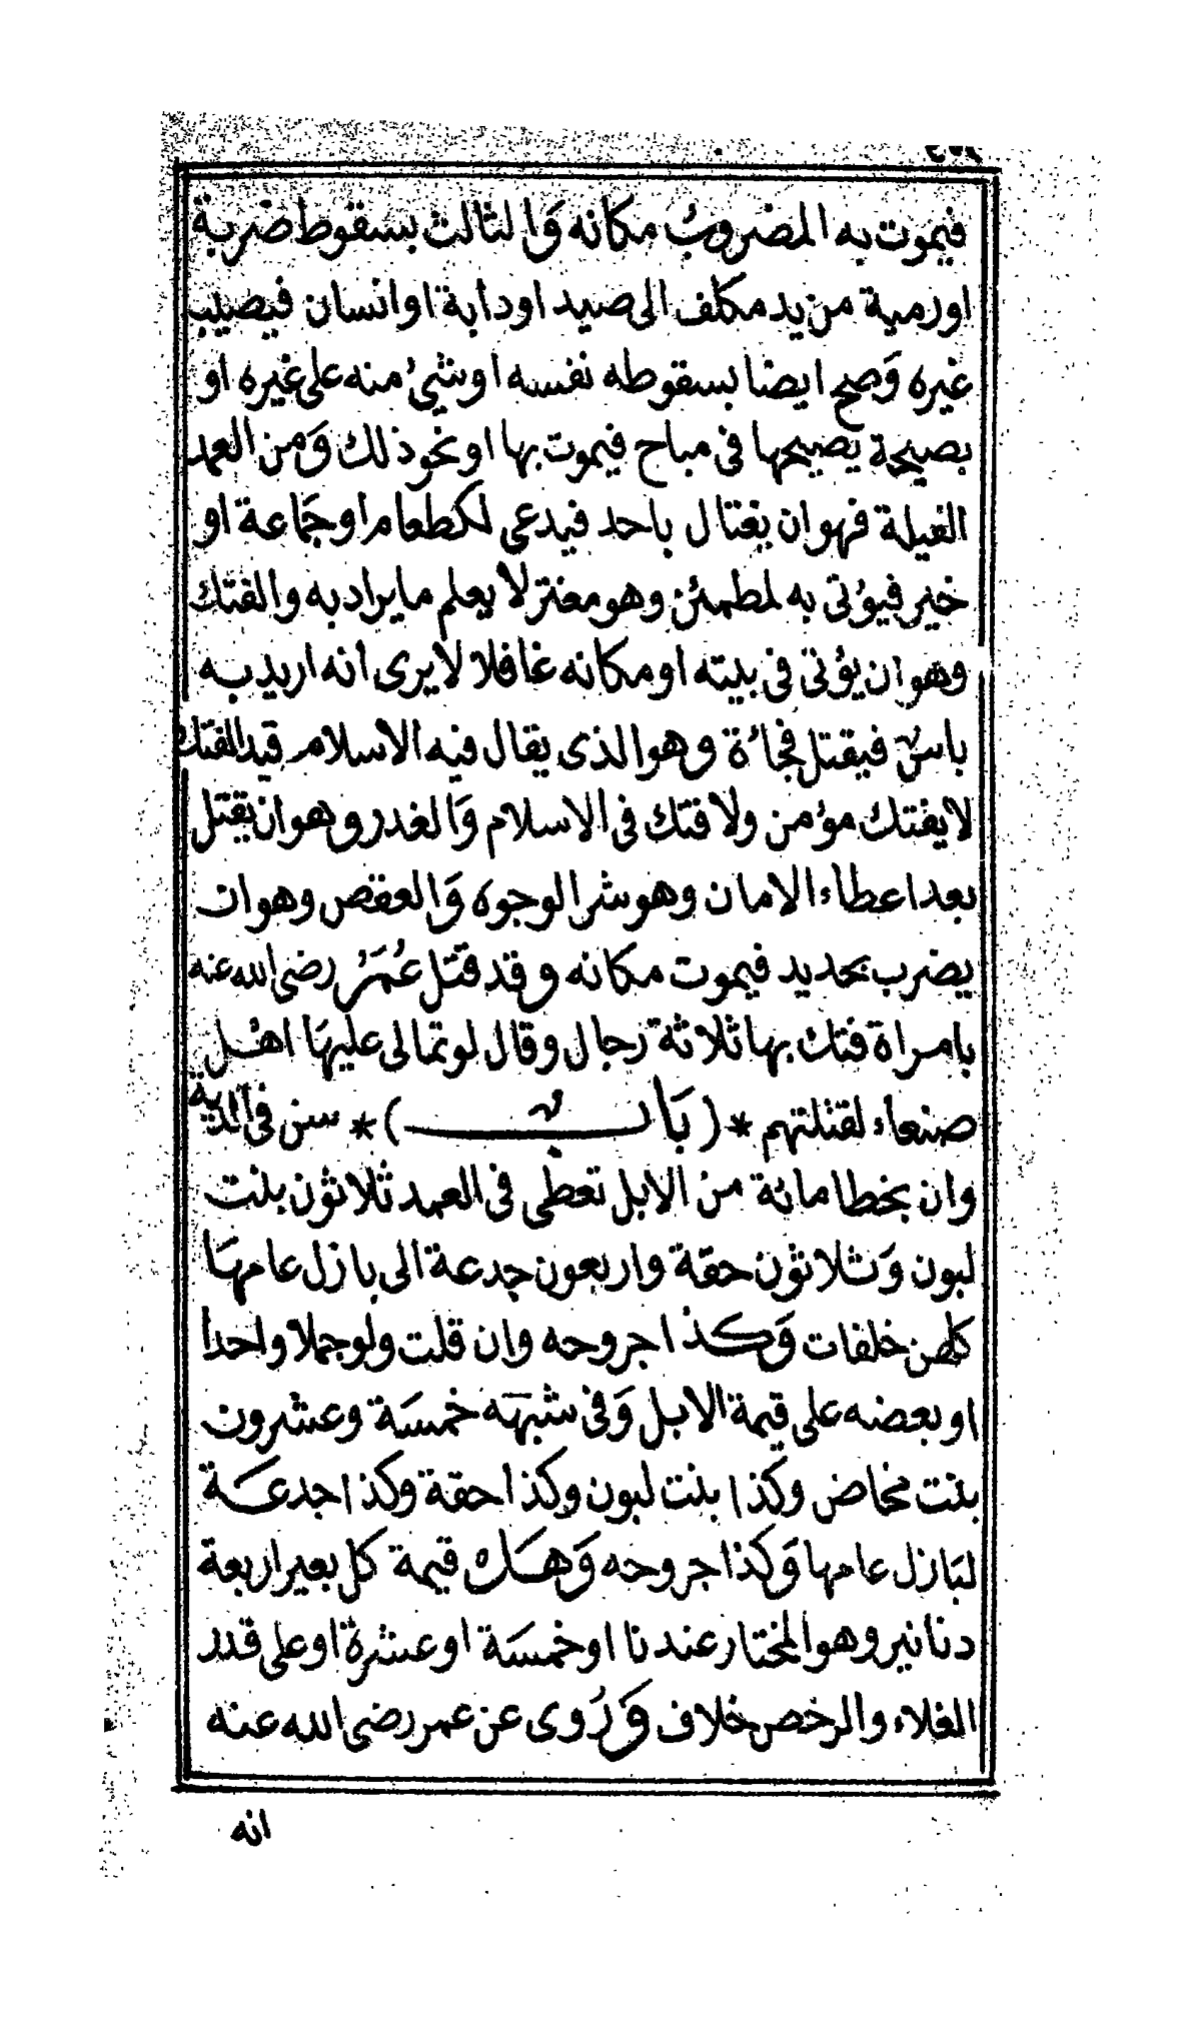 فيموت به المضروب مكانه وَالثالث بسقوط ضربة
او رمية من يد مكلف الى صيد او دابة او انسان فيصيب
غيره وَصح ايضا بسقوطه نفسه او شيئ منه على غيره او
بصيحة يصيحها فى مباح فيموت بها او نحو ذلك وَمن العمد
الغيلة فهو ان يغتال باحد فيدعى لكطعام او جَماعة او
خير فيؤتى به لمطمئن وهو مغتر لا يعلم ما يراد به والفتك
وهو ان يؤتى فى بيته او مكانه غافلا لا يرى انه اريد به
باس فيقتل فجاءة وهو الذى يقال فيه الاسلام قيد الفتك
لا يفتك مؤمن ولا فتك فى الاسلام وَالغدر وهو ان يقتل
بعد اعطاء الامان وهو شر الوجوه وَالعقص وهو ان
يضرب بحديد فيموت مكانه وقد قتل عُمَرُ رضى الله عنه
بامراة فتك بها ثلاثة رجال وقال لو تمالى عليهَا اهل
صنعاء لقتلتهم * (بَاب) * سن فى الدية
وان بخطا مائة من الابل تعطى فى العمد ثلاثون بنت
لبون وَثلاثون حقة واربعون جدعة الى بازل عامهَا
كلهن خلفات وَكذا جروحه وان قلت ولو جملا واحدا
او بعضه على قيمة الابل وَفى شبهه خمسَة وعشرون
بنت مخاض وكذا بنت لبون وكذا حقة وكذا جدعَة
لبَازل عامها وَكذا جروحه وَهَل قيمة كل بعير اربعة
دنانير وهو المختار عندنا او خمسَة او عشرة او على قدر
الغلاء والرخص خلاف وَرُوى عن عمر رضى الله عنه
انه